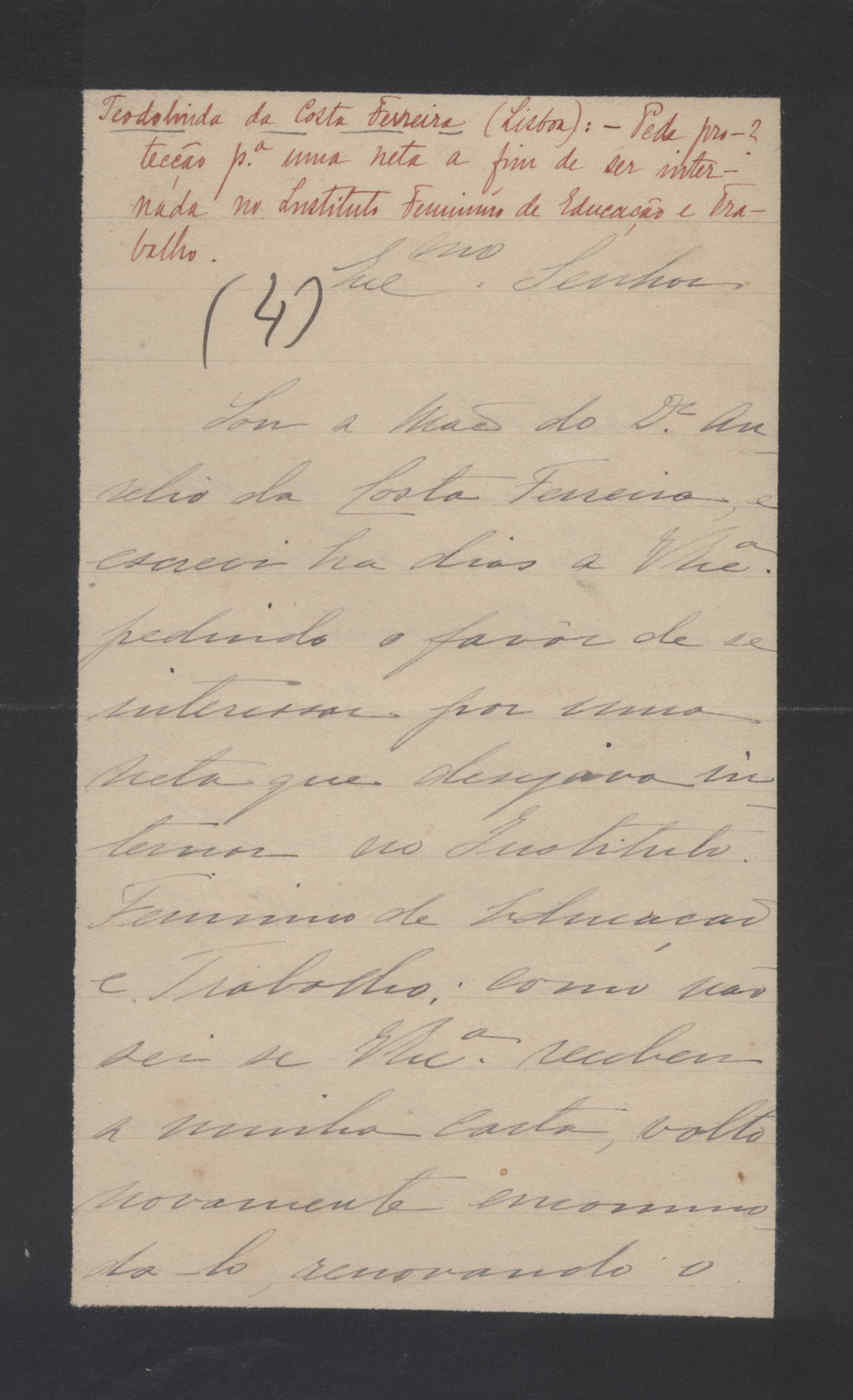 Teodolinda da Costa Ferreira (Lisboa): - Pede pro-
tecção p.ª uma neta a fim de ser inter-
náda no Instituto Feminino de Educação e Tra-
balho.
(4)
Exc.mo Senhor
Sou a Mãe do D.r Au-
relio da Costa Ferreira, e
escrevi ha dias a V. Exc.ª
pedindo o favôr de se
interessar por uma
neta que desejava in-
ternar no Instituto
Feminino de Educação
e Trabalho; como não
sei se V. Exc.ª recebeu
a minha carta, volto
novamente encommo-
da-lo, renovando o